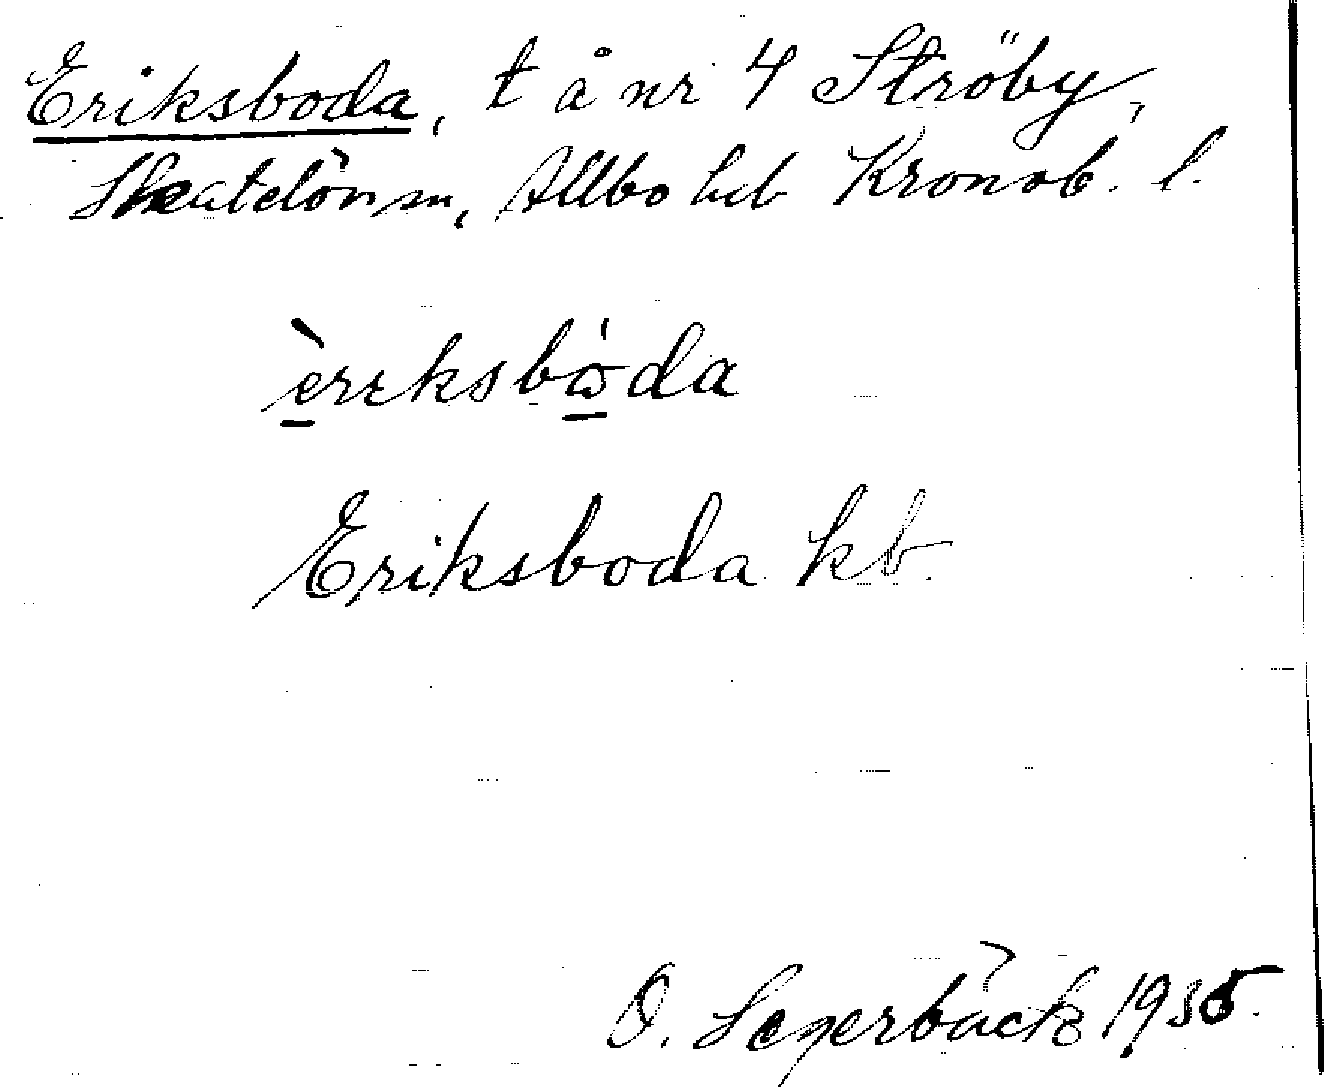 Eriksboda, t å nr 4 Ströby,
Skatelövsn, Allbo hd Kronob. l.
èriksbóda
Eriksboda kb.
O. Segerbäck 1935.